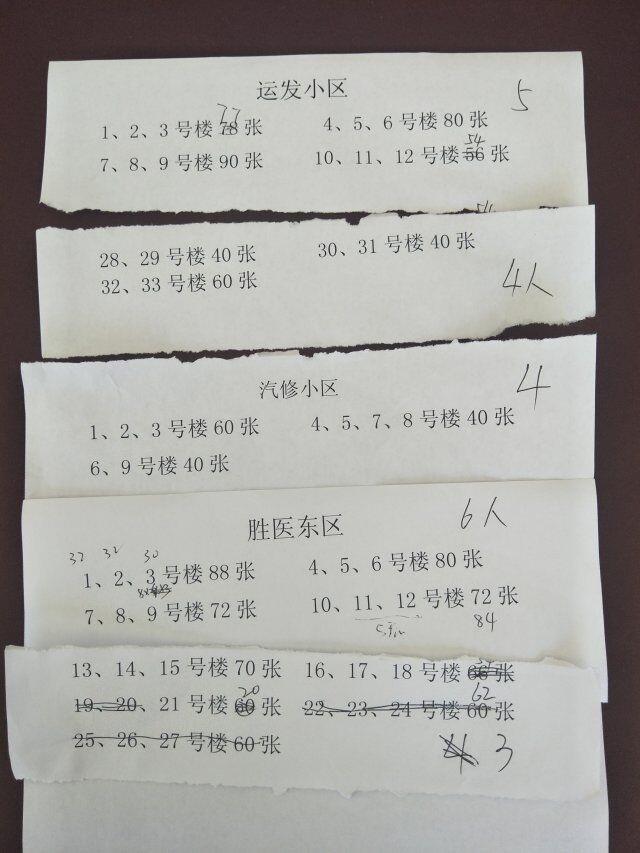 运发小区 5
77
1、2、3 号楼 78 张 4、5、6 号楼 80 张
54
7、8、9 号楼 90 张 10、11、12 号楼 56 张
28、29 号楼 40 张 30、31 号楼 40 张
32、33 号楼 60 张
4人
汽修小区 4
1、2、3 号楼 60 张 4、5、7、8 号楼 40 张
6、9 号楼 40 张
胜医东区 6人
32 32 30
1、2、3 号楼 88 张 4、5、6 号楼 80 张
7、8、9 号楼 72 张 10、11、12 号楼 72 张
84
13、14、15 号楼 70 张 16、17、18 号楼 66 张
20 62
19、20、21 号楼 60 张 22、23、24 号楼 60 张
25、26、27 号楼 60 张
4 3